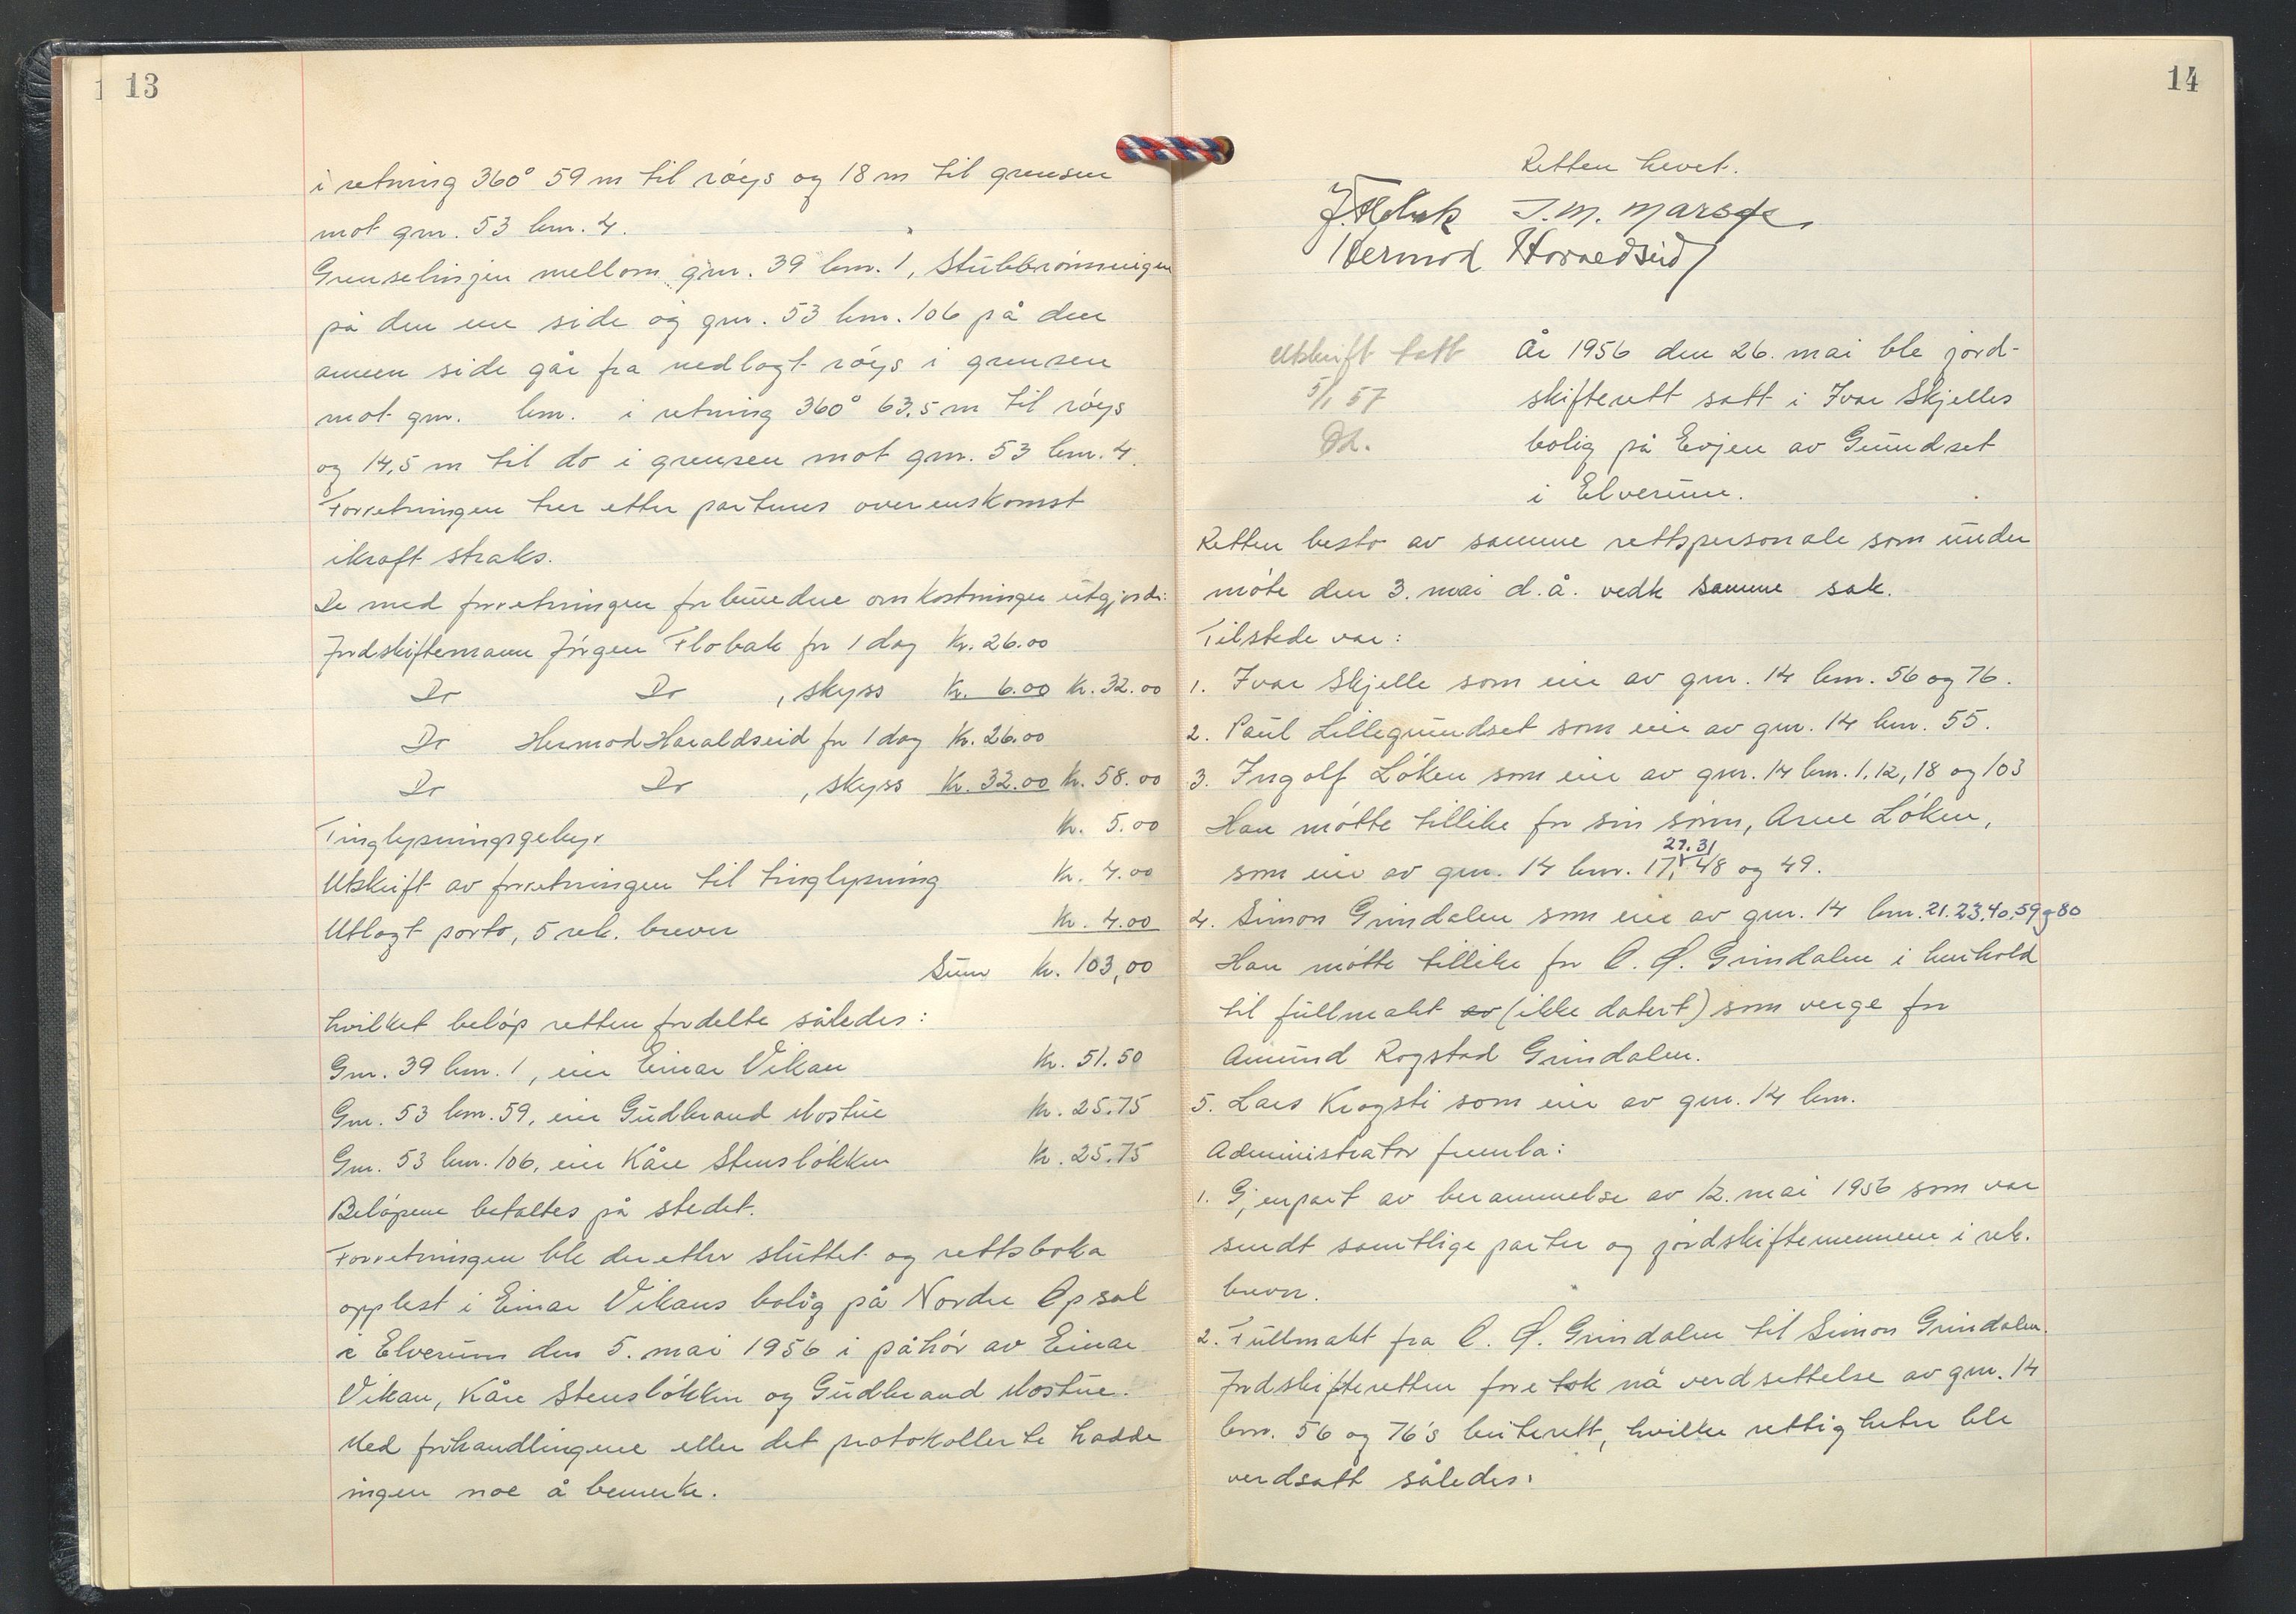 13
i retning 360° 59 m til röys og 18 m til grensen
mot gnr. 53 bnr. 4.
Grenselinjen mellom gnr. 39 bnr. 1, Stubbrönningen
på den ene side og gnr. 53 bnr. 106 på den
annen side går fra nedlagt röys i grensen
mot gnr. bnr. i retning 360° 63,5 m til röys
og 14,5 m til do i grensen mot gnr. 53 bnr. 4.
Forretningen trer etter partenes overenskomst
ikraft straks.
De med forretningen forbundne omkostninger utgjorde:
Jordskiftemann Jörgen Flobak for 1 dag Kr. 26.00
Do Do , skyss Kr. 6.00 Kr. 32.00
Do Hermod Haraldseid for 1 dag Kr. 26.00
Do Do , skyss Kr. 32.00 Kr. 58.00
Tinglysningsgebyr Kr. 5.00
Utskrift av forretningen til tinglysning Kr. 4.00
Utlagt porto, 5 rek. brever Kr. 4.00
Sum Kr. 103,00
hvilket belöp retten fordelte således:
Gnr. 39 bnr. 1, eier Einar Vikan Kr. 51.50
Gnr. 53 bnr. 59, eier Gudbrand Mostue Kr. 25.75
Gnr. 53 bnr. 106, eier Kåre Stenslökken Kr. 25.75
Belöpene betaltes på stedet.
Forretningen ble deretter sluttet og rettsboka
opplest i Einar Vikans bolig på Nordre Opsal
i Elverum den 5. mai 1956 i påhör av Einar
Vikan, Kåre Stenslökken og Gudbrand Mostue.
Med forhandlingene eller det protokollerte hadde
ingen noe å bemerke.
14
Retten hevet.
J. Flobak J. M.
Hermod Haraldseid
Utskrift tatt
5/1 57
År 1956 den 26. mai ble jord-
skifterett satt i Ivar Skjelles
bolig på Evjen av Grundset
i Elverum.
Retten besto av samme rettspersonale som under
möte den 3. mai d.å. vedk samme sak.
Tilstede var:
1. Ivar Skjelle som eier av gnr. 14 bnr. 56 og 76.
2. Paul Lillegrundset som eier av gnr. 14 bnr. 55.
3. Ingolf Löken som eier av gnr. 14 bnr. 1, 12, 18 og 103
Han mötte tillike for sin sönn, Arne Löken,
27. 31
som eier av gnr. 14 bnr. 17, 48 og 49.
4. Simon Grindalen som eier av gnr. 14 bnr. 21. 23, 40, 59 og 80
Han mötte tillike for O. Ø. Grindalen i henhold
til fullmakt av (ikke datert) som verge for
Amund Rogstad Grindalen.
5. Lars Krogsti som eier av gnr. 14 bnr.
Administrator fremla:
1. Gjenpart av berammelse av 12. mai 1956 som var
sendt samtlige parter og jordskiftemennene i rek.
brever.
2. Fullmakt fra O. Ø. Grindalen til Simon Grindalen.
Jordskifteretten foretok nå verdsettelse av gnr. 14
bnr. 56 og 76's beiterett, hvilke rettigheter ble
verdsatt således: